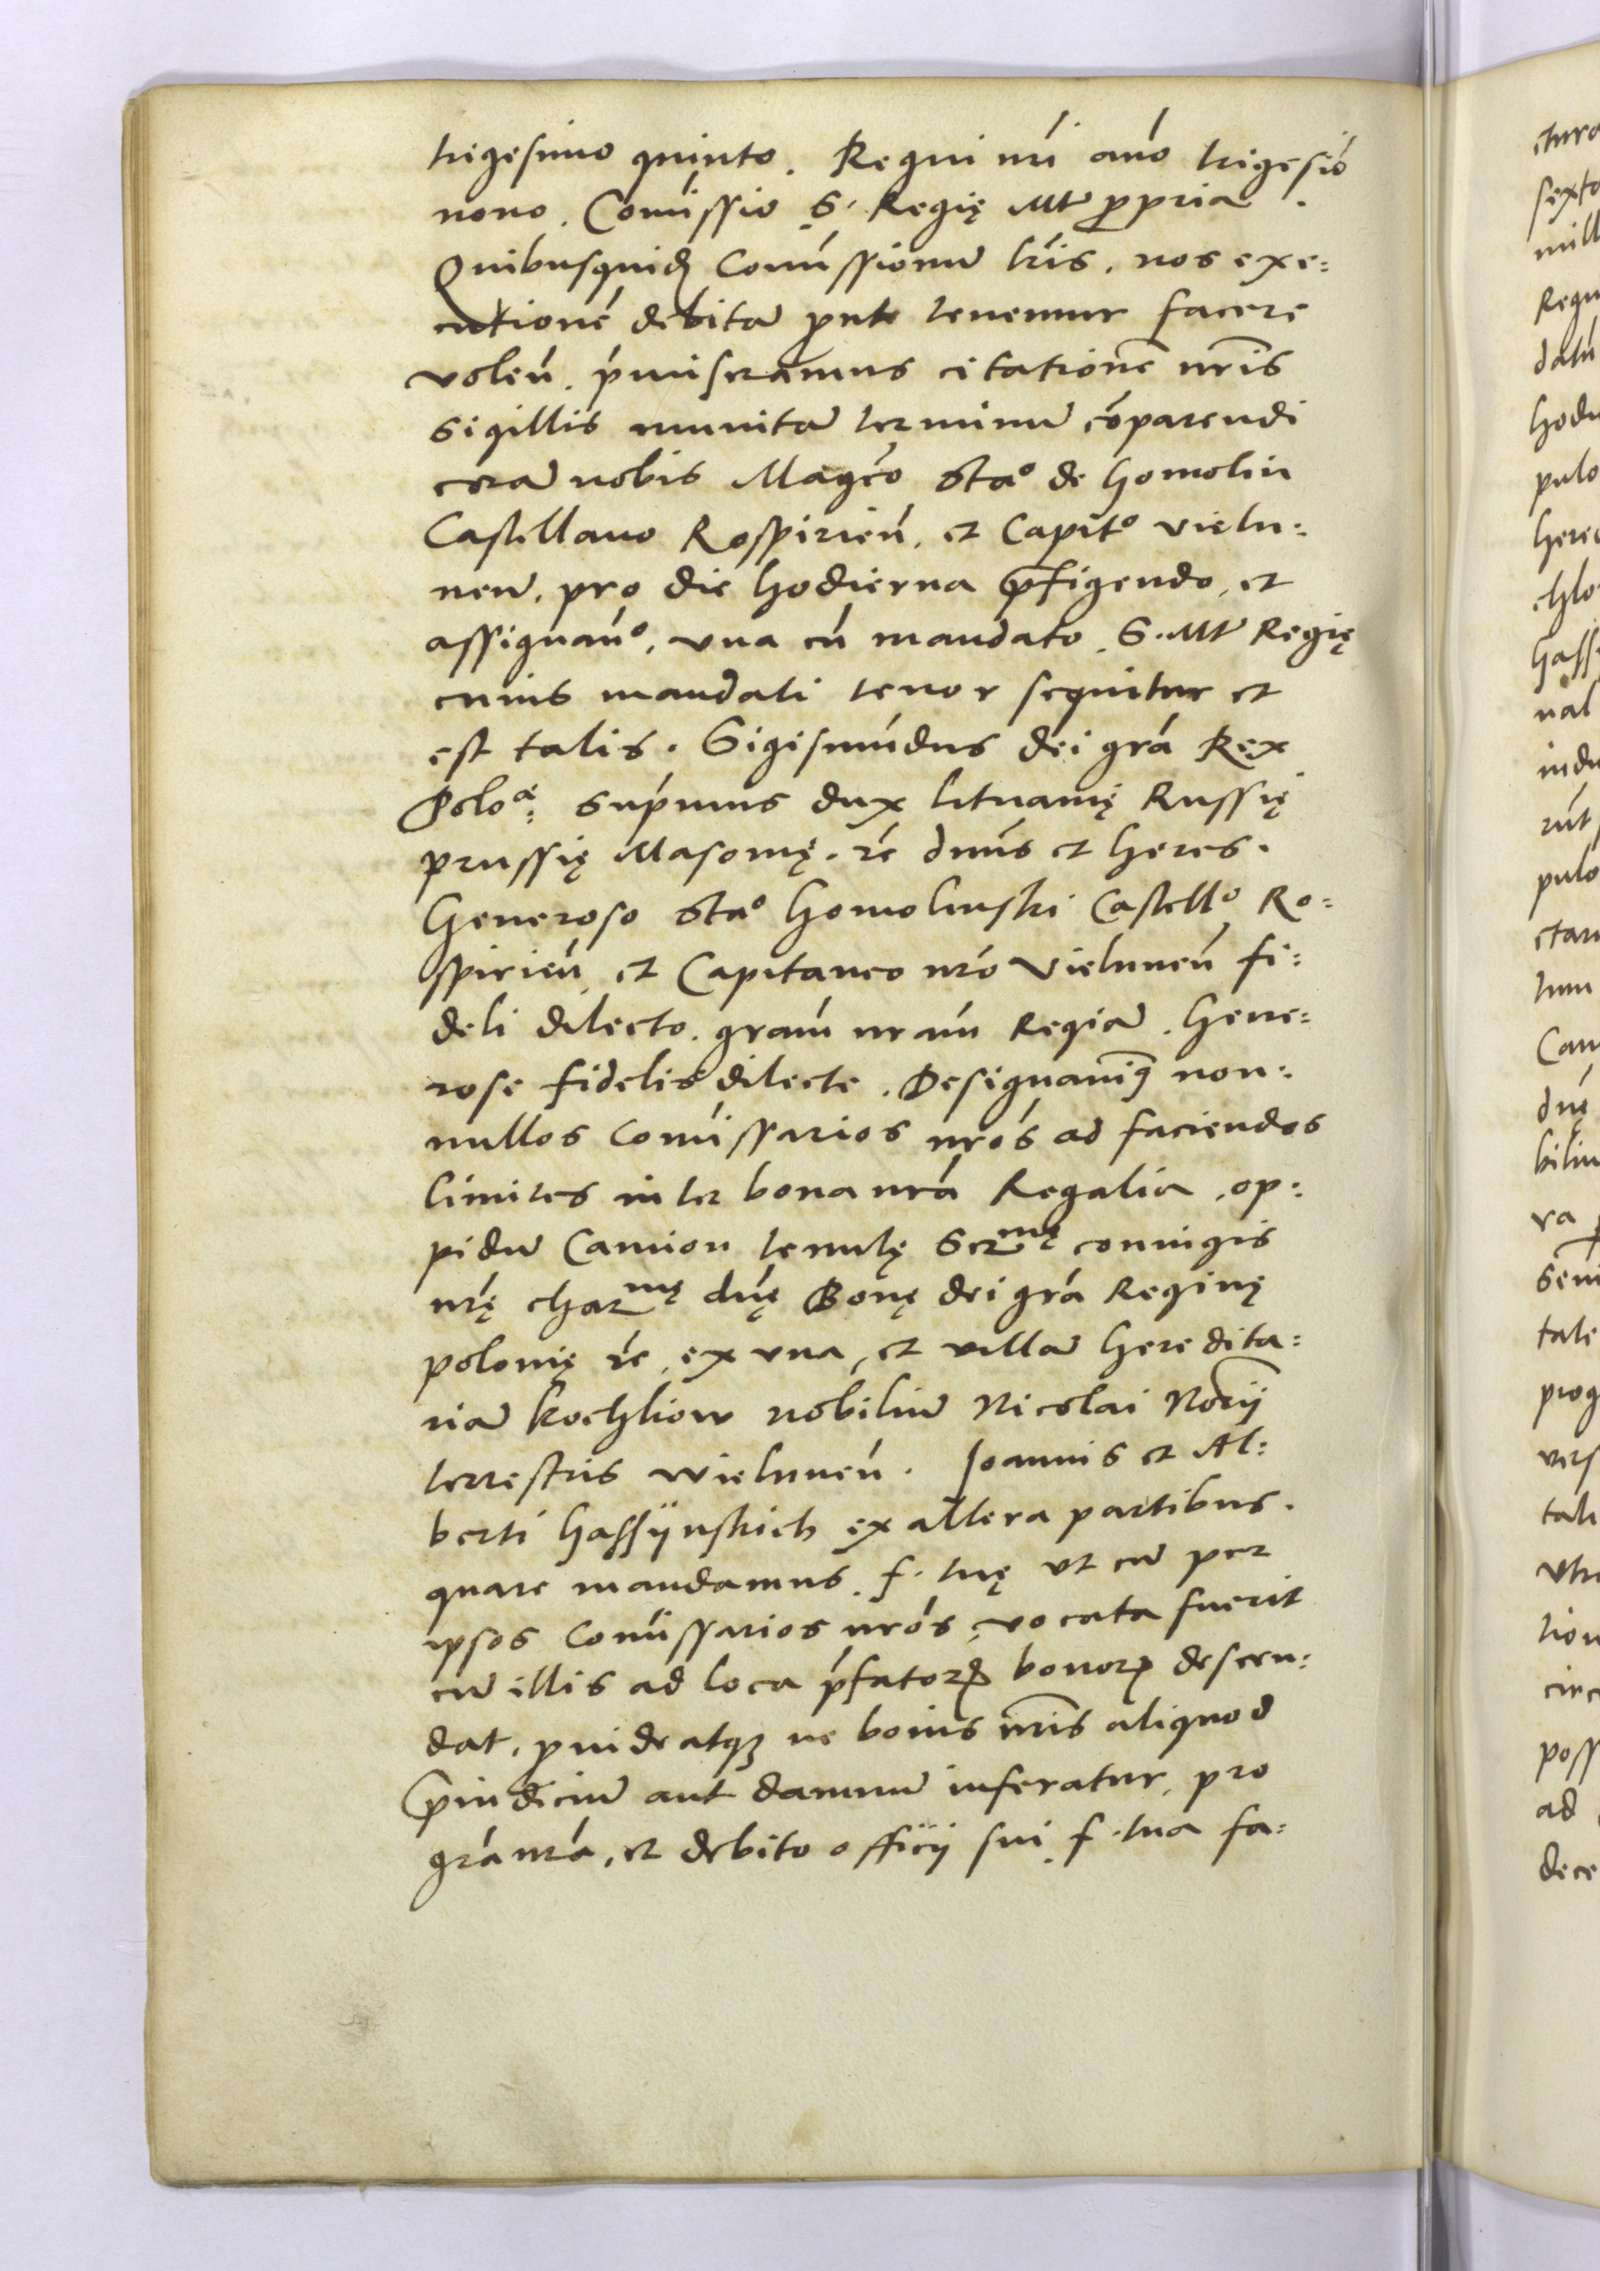 trigesimo quinto. Regni nri̅ anó trigesió
nono. Comissio S. Regię Mt̅ ꝓpria.
Quibusquid̅ Comissionu̅ lris. nos exe:
cutione̅ debita̅ ꝓut tenemur facere
volen̅. p̅miseramus citatione̅ nri̅s
sigillis munita̅ terminu̅ co̅parendi
cora̅ nobis Magco Sta° de Homolin
Castellano Rospirien̅. et Capit° vielu:
nen̅. pro die hodierna p̅figendo, et
assignan̅°, vna cu̅ mandato S. Mt̅ Regię
cuius mandati tenor sequitur et
est talis. Sigismu̅dus dei gra̅ Rex
Poloᵉ: sup̅mus dux Lituanię Russię
prussię Masouię. rc̅ dnu̅s et heres.
Generoso Sta° Homolinski Castell° Ro:
spirien̅, et Capitaneo nro̅ vielunen̅ fi:
deli dilecto. gram̅ nram̅ Regia̅. Gene:
rose fidelis dilecte. Designauim9 non:
nullos Comissarios nro̅s ad faciendos
limites inter bona nra̅ Regalia, op:
pidu̅ Camion tenutę Serᵐę coniugis
nrę̅ charᵐę dnę̅ Bonę dei gra̅ Reginę
polonię rc̅, ex vna, et villa̅ heredita:
ria̅ Kochliow nobiliu̅ Nicolai Nori̅j
terrestris wielunen̅. Joannis et Al:
berti Gassijnskich ex altera partibus.
quare mandamus f. tuę vt cu̅ per
ipsos Comissarios nro̅s, vocata fuerit
cu̅ illis ad loca p̅fatorꝝ bonorꝝ descen:
dat, ꝓuideatqꝫ ne bonis nri̅s aliquod
p̅iudiciu̅ aut damnu̅ inferatur, pro
gra̅ nra̅, et debito officij sui f. tua fa: